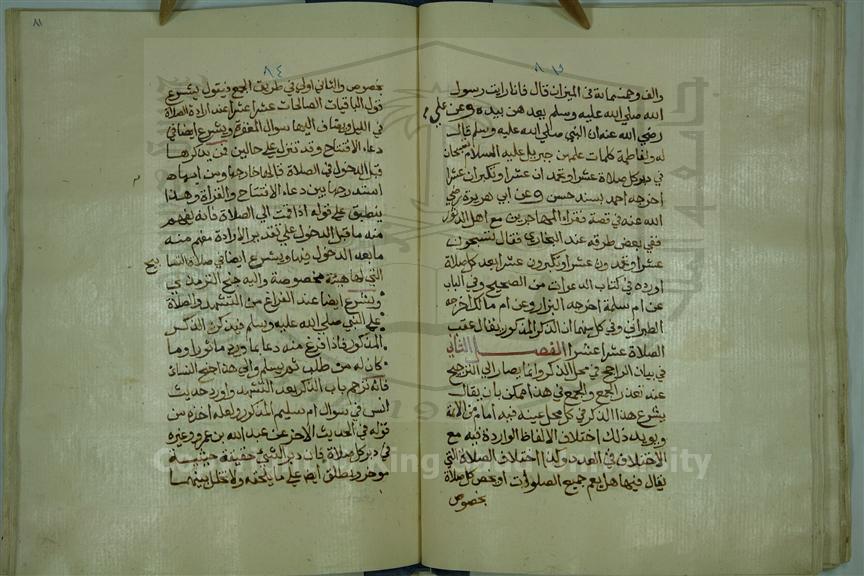 ٨٣
والف وخمسمائة في الميزان قال فانا رايت رسول
الله صلي الله عليه وسلم يعدهن بيده وعن علي
رضي الله عنه ان النبي صلي الله عليه وسلم قال
له ولفاطمة كلمات علمهن جبريل عليه السلام تسبحان
في دبر كل صلاة عشرا وتحمدان عشرا وتكبران عشرا
اخرجه احمد بسند حسن وعن ابي هريرة رضي
الله عنه في قصة فقراء المهاجرين مع اهل الدثور
ففي بعض طرقه عند البخاري فقال تسبحون
عشرا وتحمدون عشرا وتكبرون عشرا بعد كل صلاة
اورده في كتاب الدعوات من الصحيح وفي الباب
عن ام سلمة اخرجه البزار وعن ام مالك اخرجه
الطبراني وفي كل منهما ان الذكر المذكور يقال عقب
الصلاة عشرا عشرا الفصل الثاني
في بيان الراجح في محل الذكر وانما يصار الي الترجيح
عند تعذر الجمع والجمع في هذا ممكن بان يقال
يشرع هذا الذكر في كل محل عينه فيه امام من الائمة
ويويد ذلك اختلاف الالفاظ الواردة فيه مع
الاختلاف في العدد وكذا اختلاف الصلاة التي
يقال فيها هل يعم جميع الصلوات او يخص كل صلاة
بخصوص
٨١
٨٤
بخصوص والثاني اولي في طريق الجمع فيقول يشرع
قول الباقيات الصالحات عشرا عشرا عند ارادة الصلاة
في الليل ويضاف اليها سوال المغفرة ويشرع ايضا في
دعاء الافتتاح وقد تنزل علي حالين فمن يذكرها
قبل الدخول في الصلاة قالها خارجها ومن
استدرجها بين دعاء الافتتاح والقراة وهذا
ينطبق علي قوله اذا قمت الي الصلاة فانه يفهم
منه ما قبل الدخول علي تقدير الارادة مفهم منه
ما بعد الدخول فيها ويشرع ايضا في صلاة التسا
بيح
التي لها هيئة مخصوصة واليه جنح الترمذي
ويشرع ايضا عند الفراغ من التشهد والصلاة
علي النبي صلي الله عليه وسلم فيذكر الذكر
المذكور فاذا فرغ منه دعا بما ورد ماثورا وما
كان له من طلب ثم يسلم والي هذا جنح النسائ
فانه ترجم باب الذكر بعد التشهد واورد حديث
انس في سوال ام سليم المذكور ولعله اخذه من
قوله في الحديث الاخر عن عبد الله بن عمرو وغيره
في دبر كل صلاة فان دبر الشيئ حقيقة
موخره ويطلق ايضا علي ما يلحقه ولا تخلل بينهما